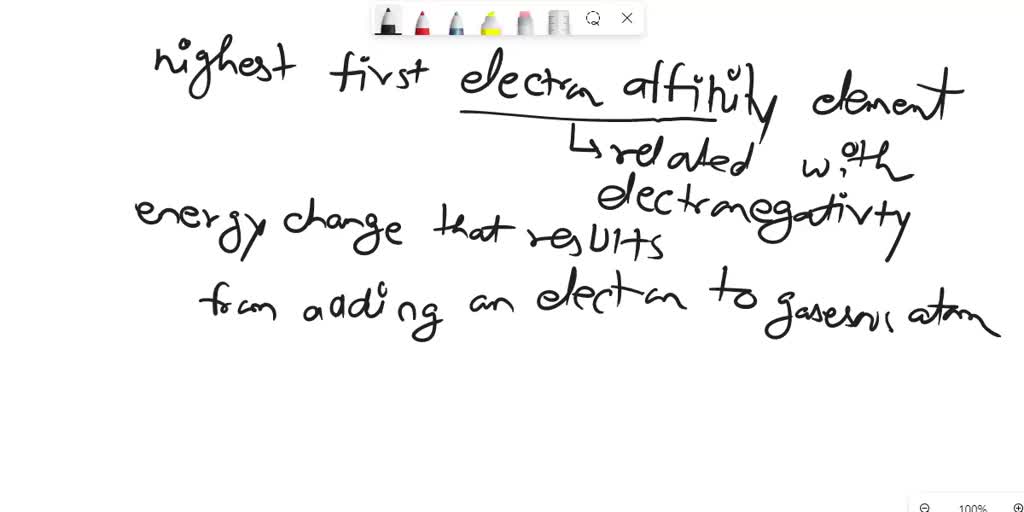 highest first electron affinity element
↳ related with
electronegativty
energy change that results
from adding an electron to gaseous atom
100%